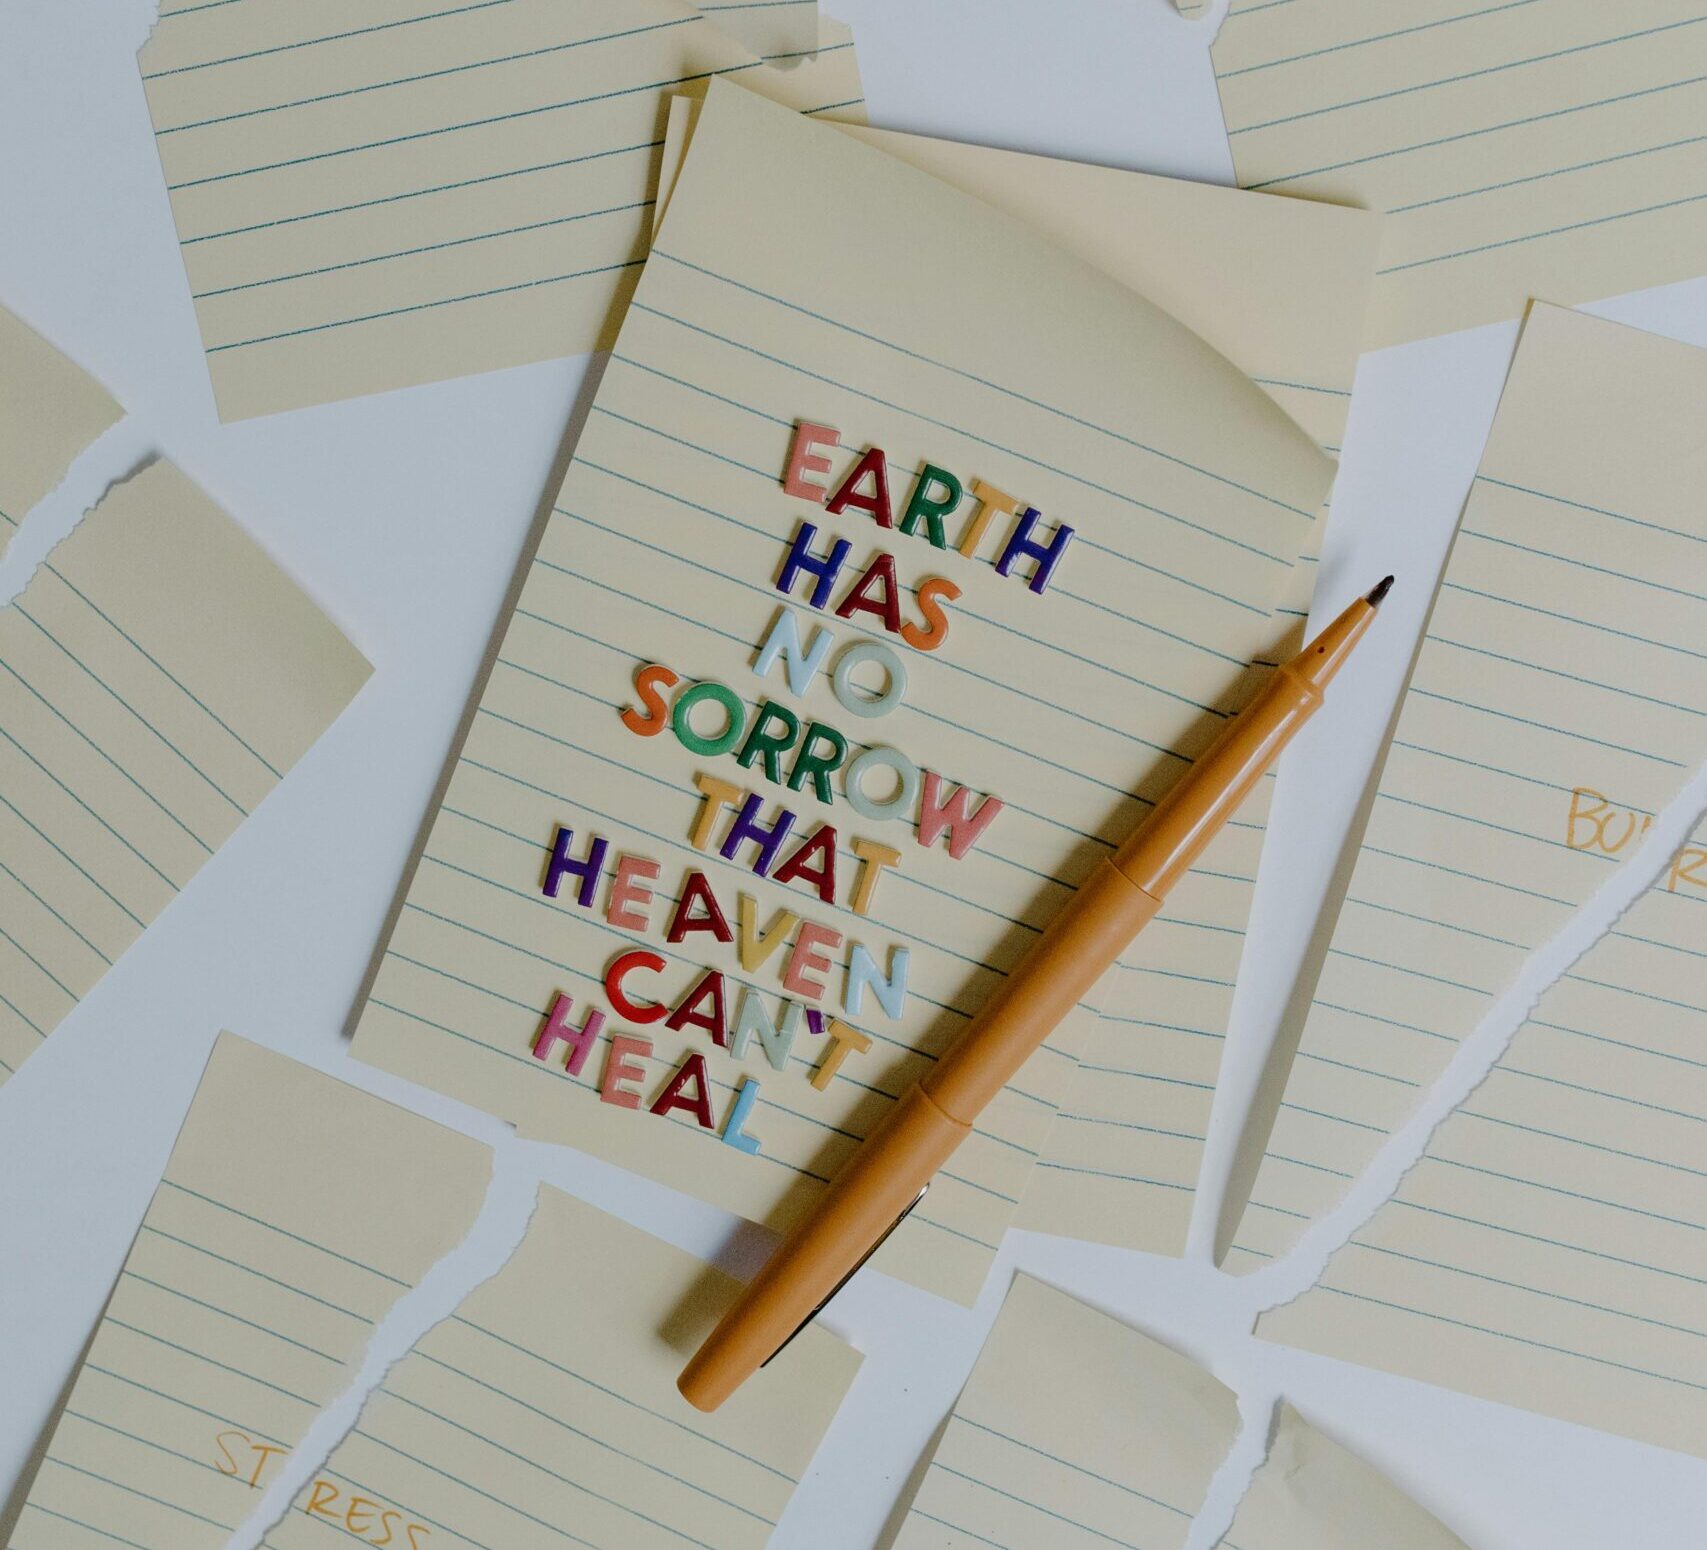 EARTH
HAS
NO
SORROW
THAT
HEAVEN
CAN'T
HEAL
STRESS